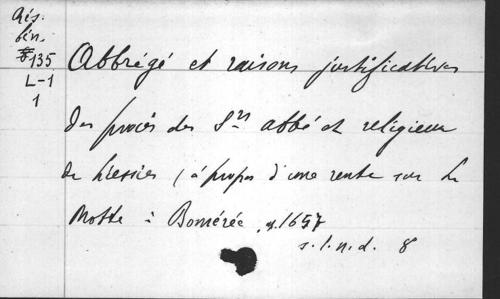 Rés.
bén.
135
L-1
1
Abbrégé et raisons justificatives
du procès des Srs abbé et religieux
de Liessies (à propos d'une rente sur la
Motte à Bomérée, 1657
s.l.n.d. 8